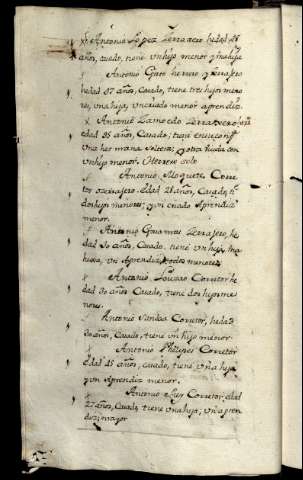 Antonio Lopez Zerrajero hedad 26
años, casado, tiene Un hijo menor y Una hija
Antonio Gato herrero y Zerrajero
hedad 57 años, Casado, tiene tres hijos meno
res, Una hija, Un criado menor aprendiz
Antonio Zamoedo Zerrajero
edad 35 años, Casado; tiene en su comp.a
Una hermana soltera; y otra viuda con
Un hijo menor
Antonio Moquete Corre
tor edad 28 años, Casado, t.e
dos hijos menores; y un criado Aprendiz
menor.
Antonio Zerrajero, he
dad 30 años, Casado. tiene Un hijo, Una
Un Aprendiz todos menores
Antonio Louzao Corretor he
dad 30 años Casado, tiene dos hijos me
nores.
Antonio Corretor, hedad
30 años, Casado, tiene Un hijo menor.
Antonio Phelipes Corretor
edad 45 años, casado, tiene Una hija
y Un Aprendiz menor.
Antonio Luis Corretor, edad
27 años, Casado, tiene Una hija; Un apren
diz; mayor